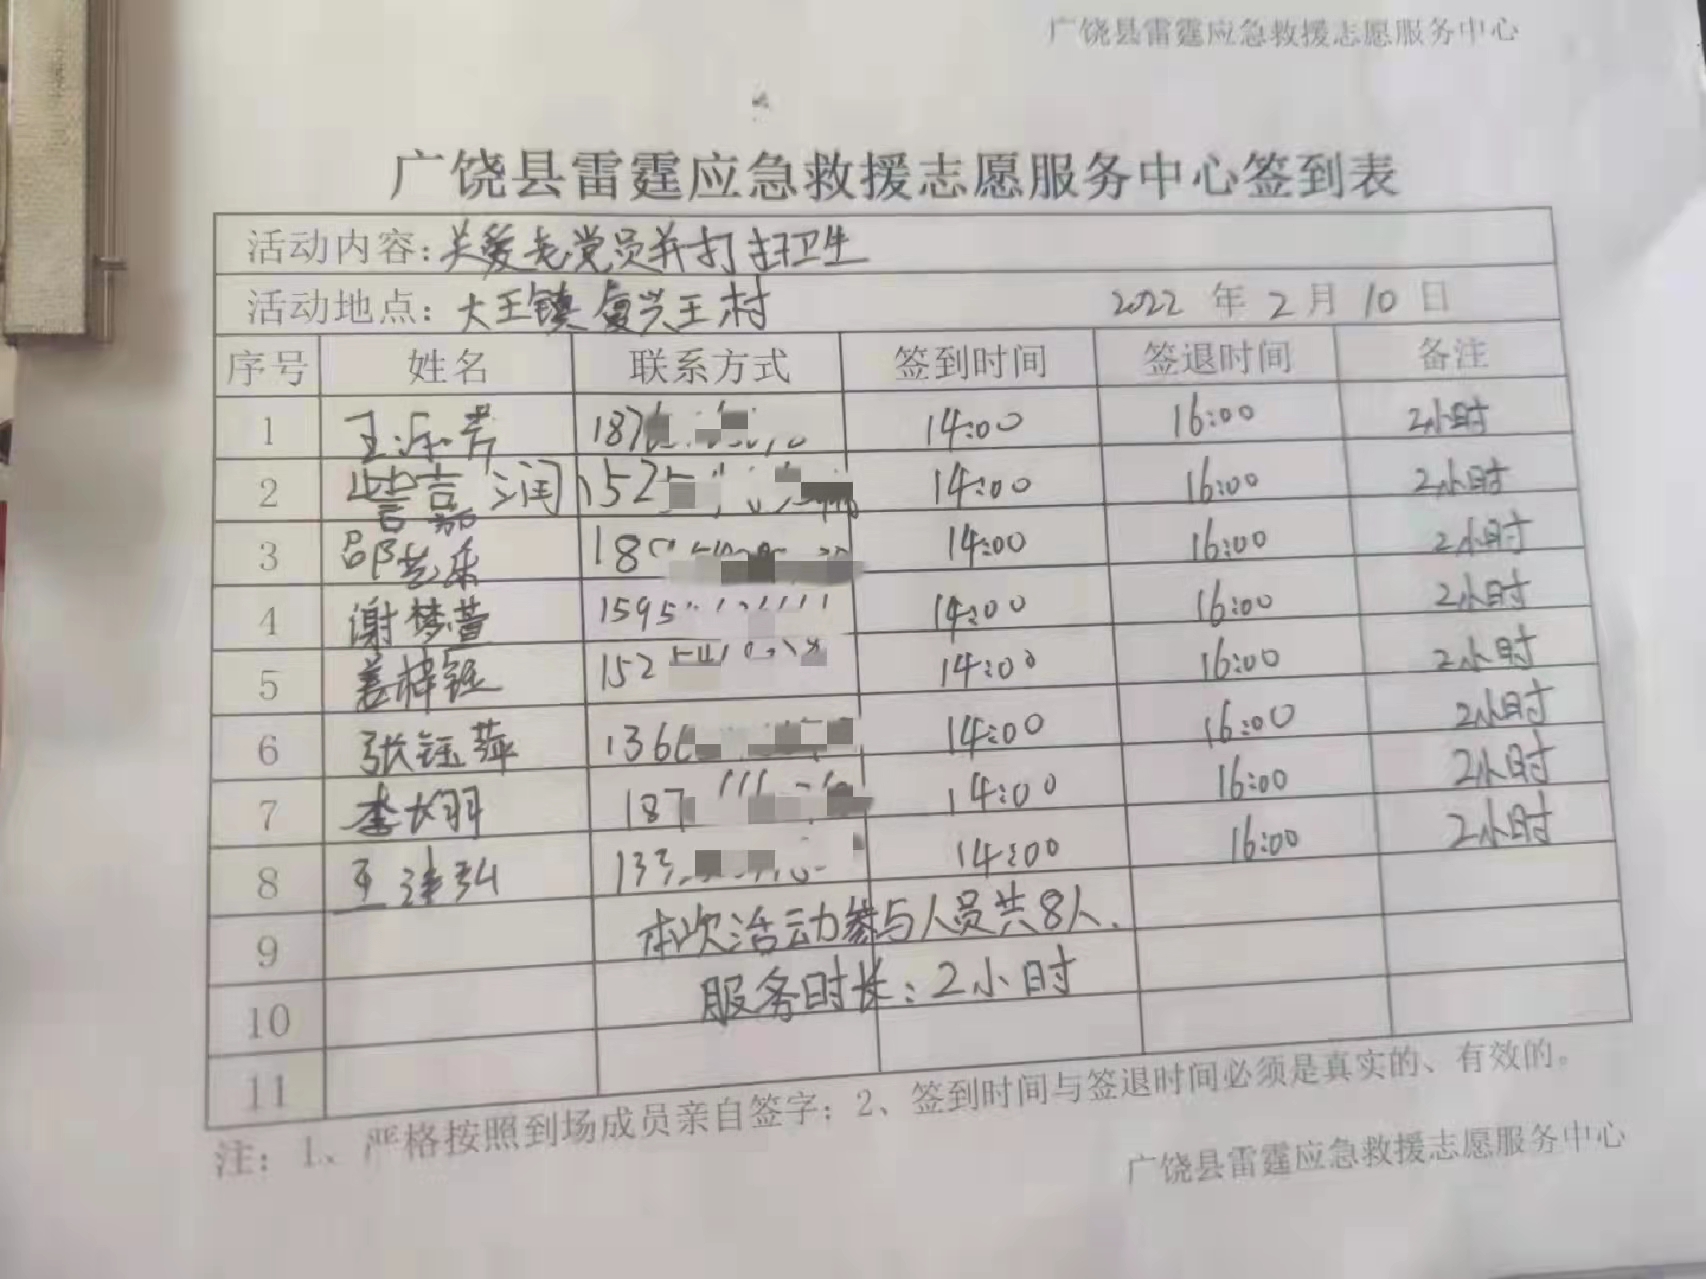 广饶县雷霆应急救援志愿服务中心
广饶县雷霆应急救援志愿服务中心签到表
活动内容：关爱老党员并打扫卫生
活动地点：大王镇复兴王村 2022 年 2 月 10 日
序号 姓名 联系方式 签到时间 签退时间 备注
1 187 14:00 16:00 2小时
2 152 14:00 16:00 2小时
3 18 14:00 16:00 2小时
4 谢梦萱 1595 14:00 16:00 2小时
5 姜梓钰 152 14:00 16:00 2小时
6 张钰萍 136 14:00 16:00 2小时
7 187 14:00 16:00 2小时
8 133 14:00 16:00 2小时
9 本次活动参与人员共8人.
10 服务时长：2小时
11
注：1、严格按照到场成员亲自签字；2、签到时间与签退时间必须是真实的、有效的。
广饶县雷霆应急救援志愿服务中心